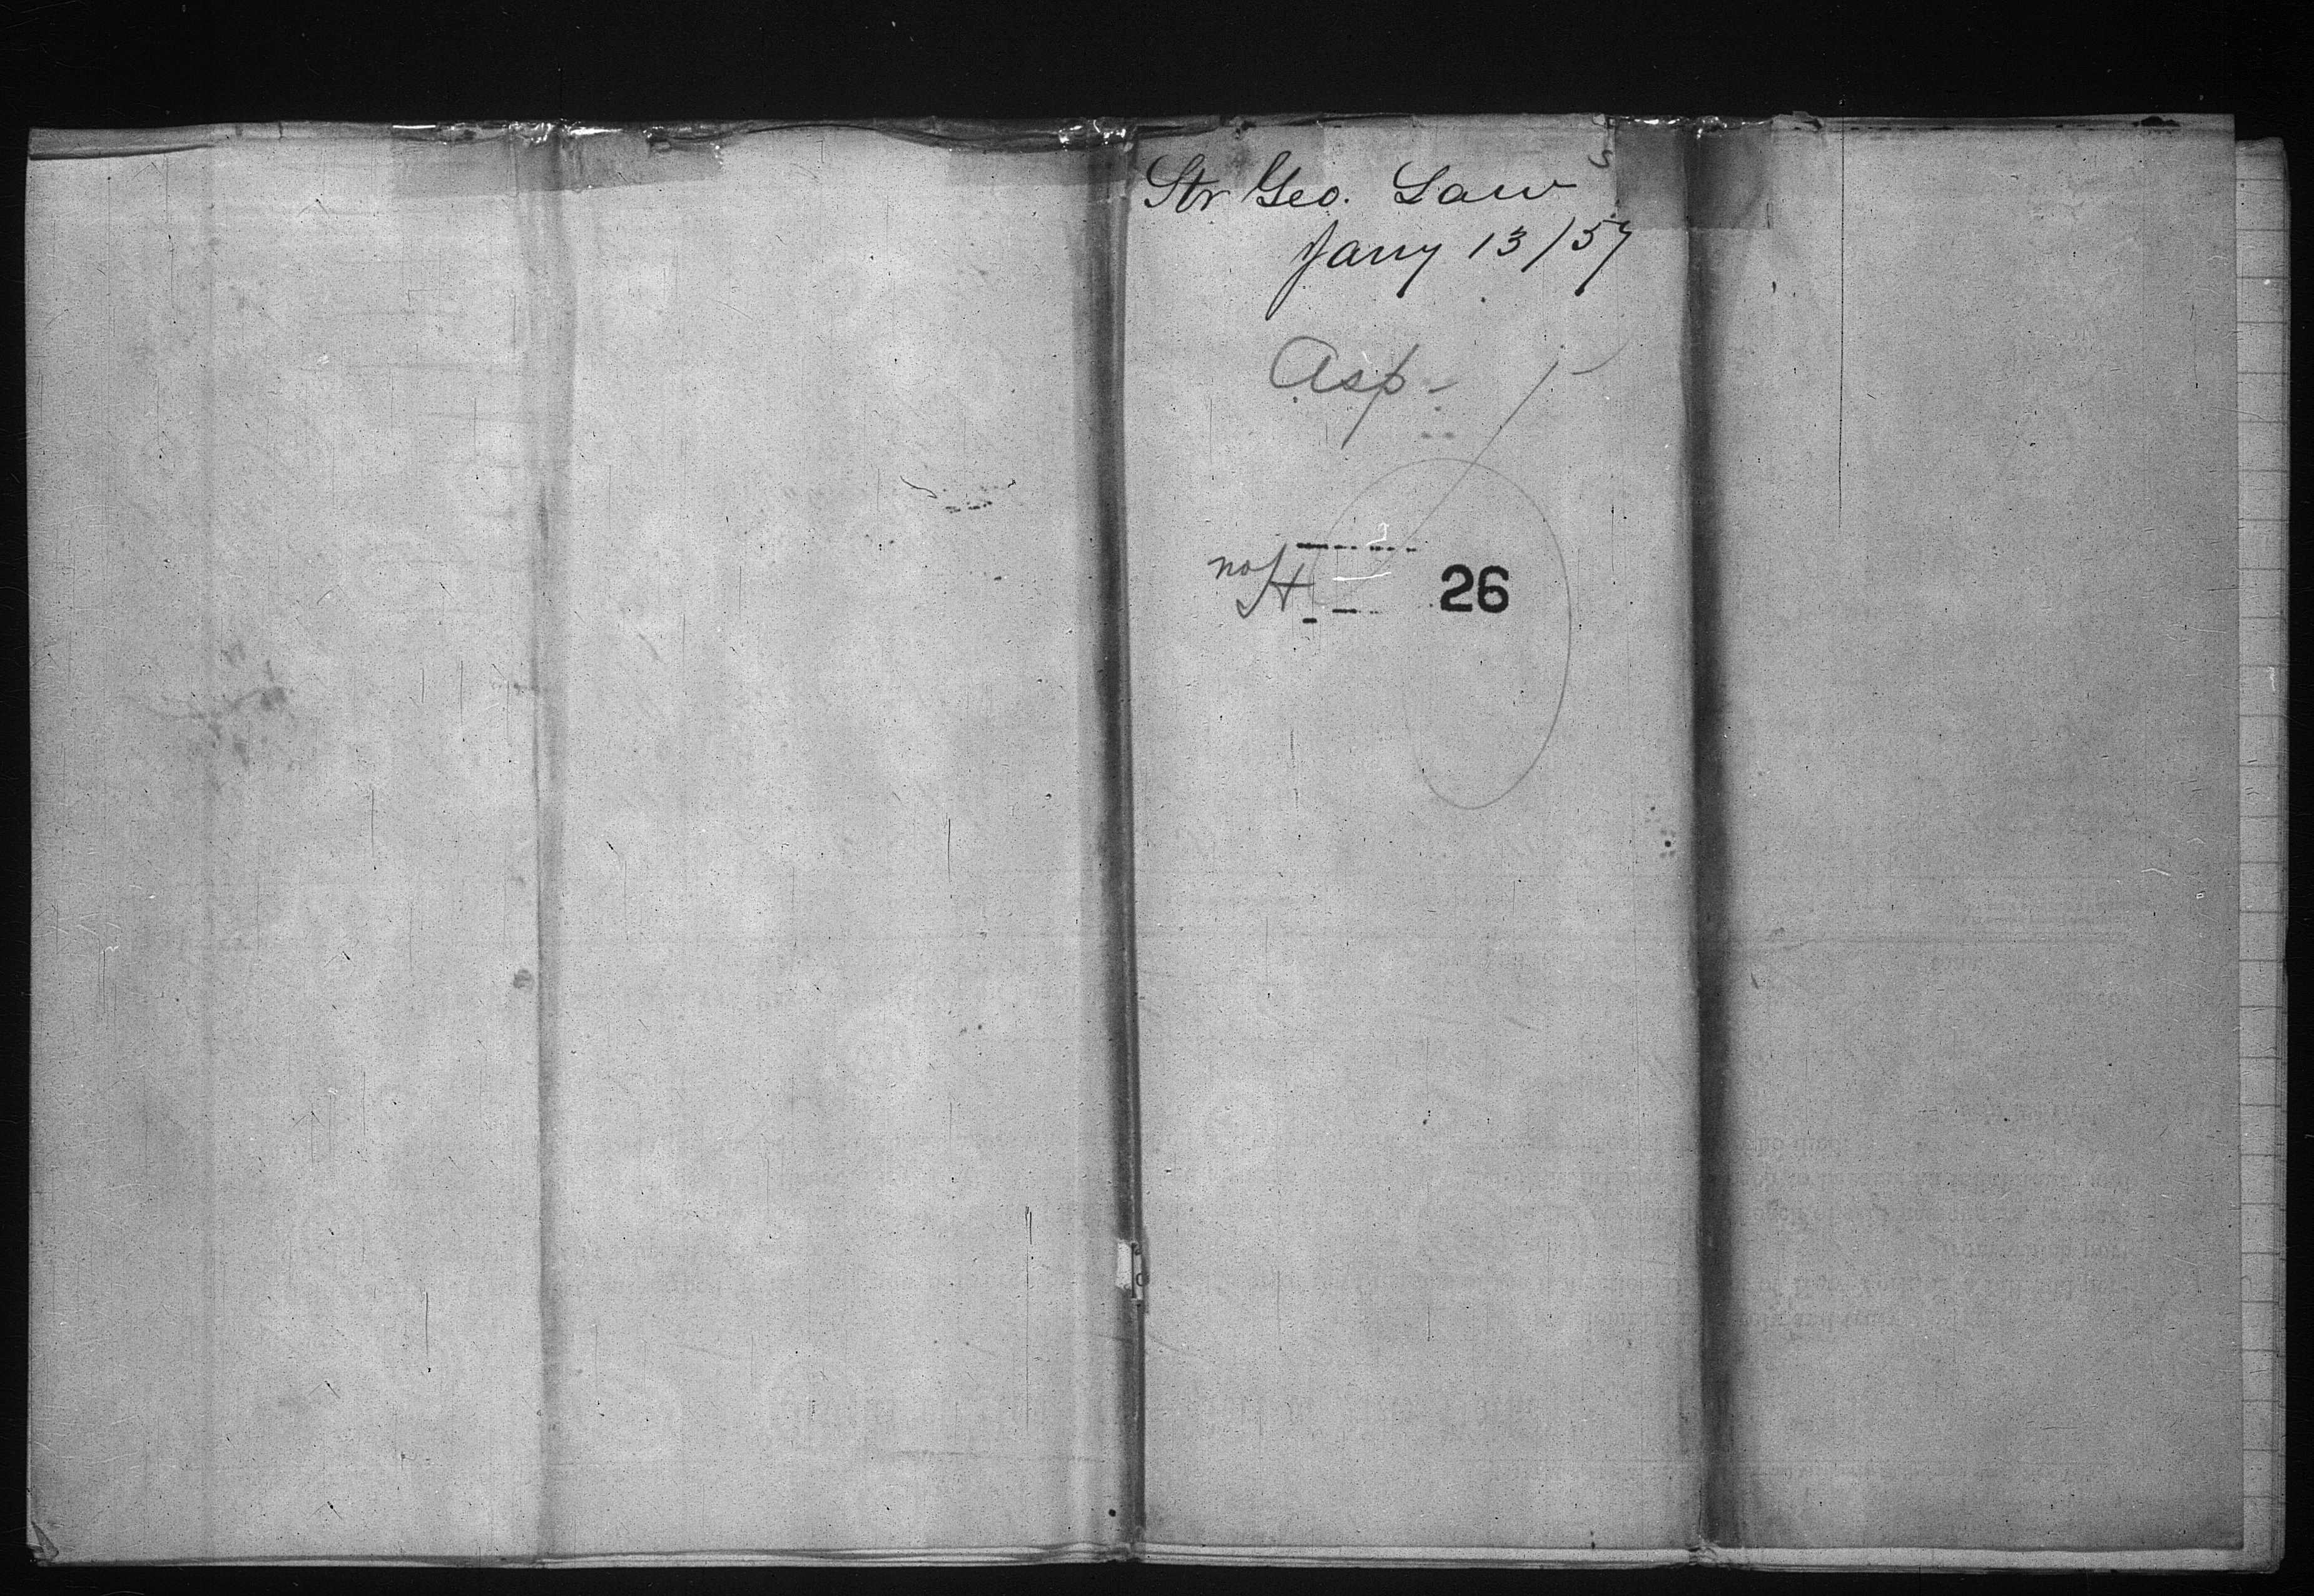 Str Geo. Law
Jany 13/57
Asp-
no H 26